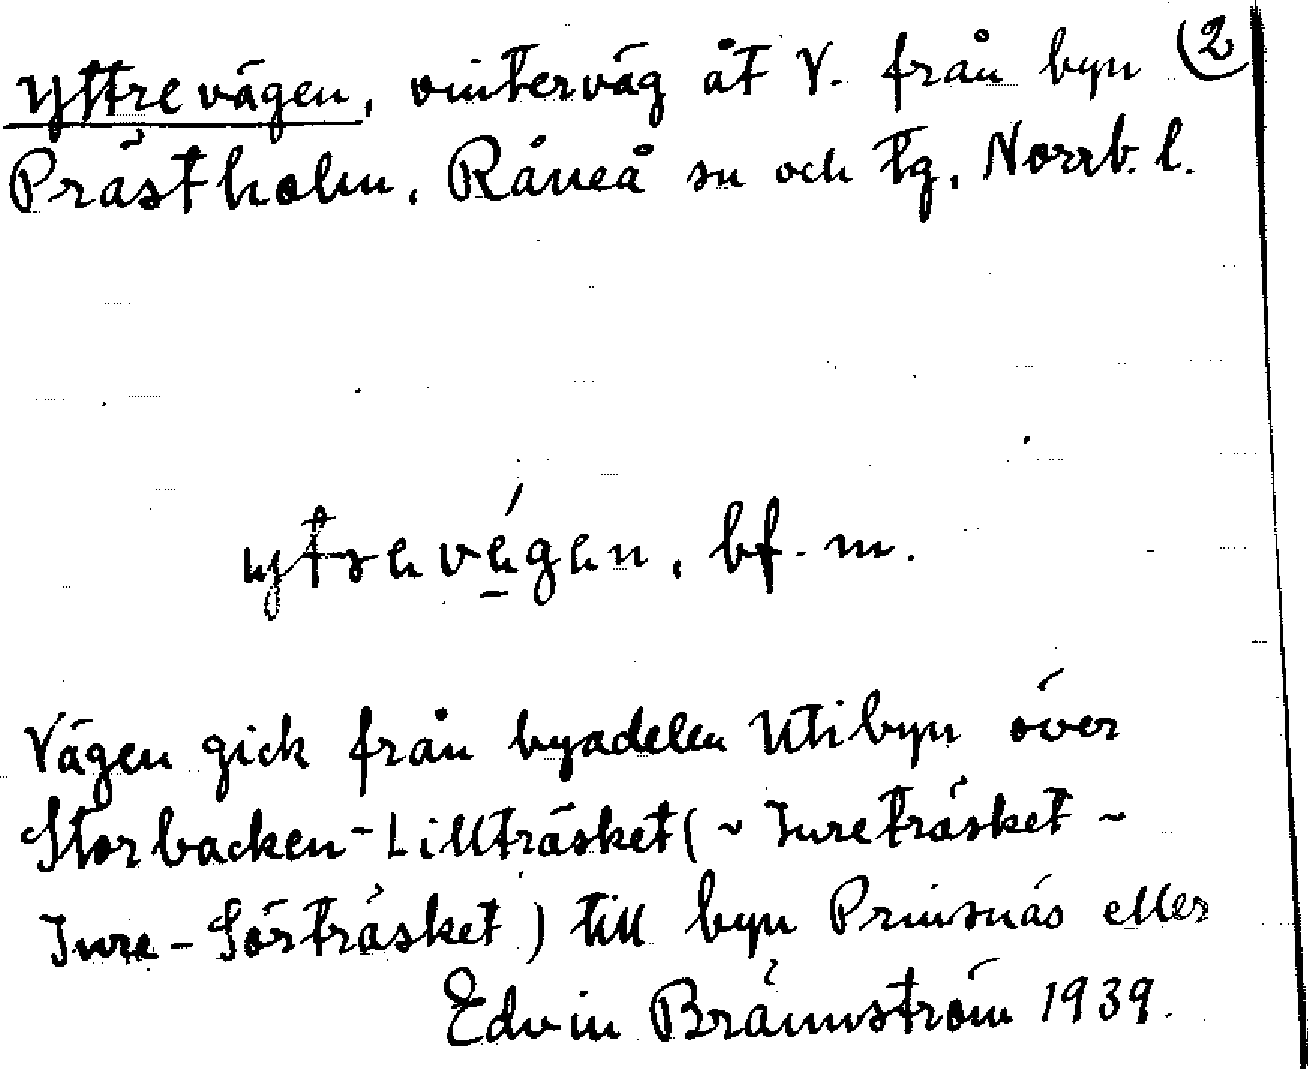 Yttrevägen, vinterväg åt V. från byn (2
Prästholm, Råneå sn och tg, Norrb. l.
ytrevégen, bf. m.
Vägen gick från byadelen Utibyn över
Storbacken-Lillträsket (~ Jureträsket ~
Jure-Sörträsket) till byn Prinsnäs eller
Edvin Brännström 1939.